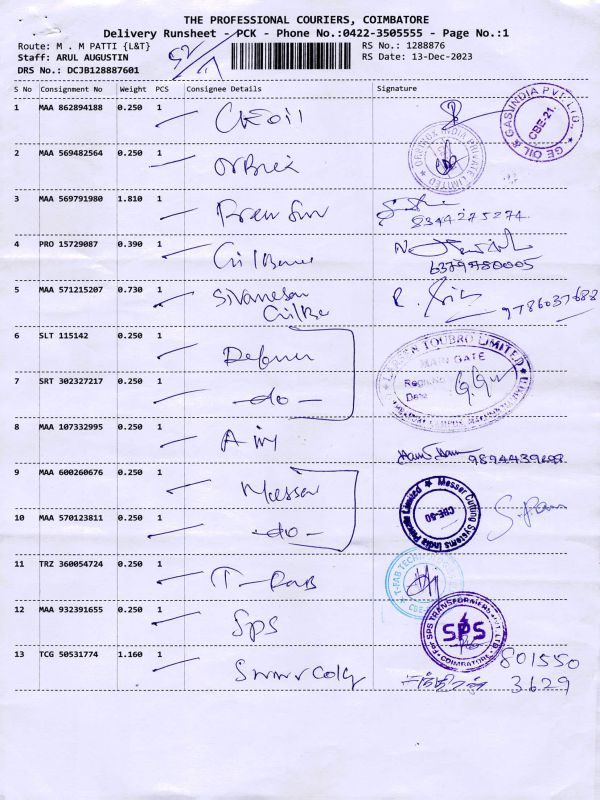 THE PROFESSIONAL COURIERS, COIMBATORE
Delivery Runsheet - PCK - Phone No.:0422-3505555 - Page No.:1
Route: M . M PATTI {L&T} RS No.: 1288876
Staff: ARUL AUGUSTIN RS Date: 13-Dec-2023
DRS No.: DCJB128887601
S No Consignment No Weight PCS Consignee Details Signature
1 MAA 862894188 0.250 1 GE oil
GE OIL & GAS INDIA PVT. LTD. CBE-21.
2 MAA 569482564 0.250 1
INDIA PRIVATE LIMITED
3 MAA 569791980 1.810 1
8344275274
4 PRO 15729087 0.390 1
6379780005
5 MAA 571215207 0.730 1 Sivanesan
9786037688
6 SLT 115142 0.250 1
LARSEN & TOUBRO LIMITED
MAIN GATE
Regn. No
Date
7 SRT 302327217 0.250 1 -do-
8 MAA 107332995 0.250 1
9894439688
9 MAA 600260676 0.250 1 Messer
Messer Cutting Systems India Private Limited CBE-50
10 MAA 570123811 0.250 1 -do-
11 TRZ 360054724 0.250 1 T-Fab
T-FAB TECH
12 MAA 932391655 0.250 1 Sps
For SPS TRANSFORMERS PVT LTD
SPS
COIMBATORE
13 TCG 50531774 1.160 1
801550
3629